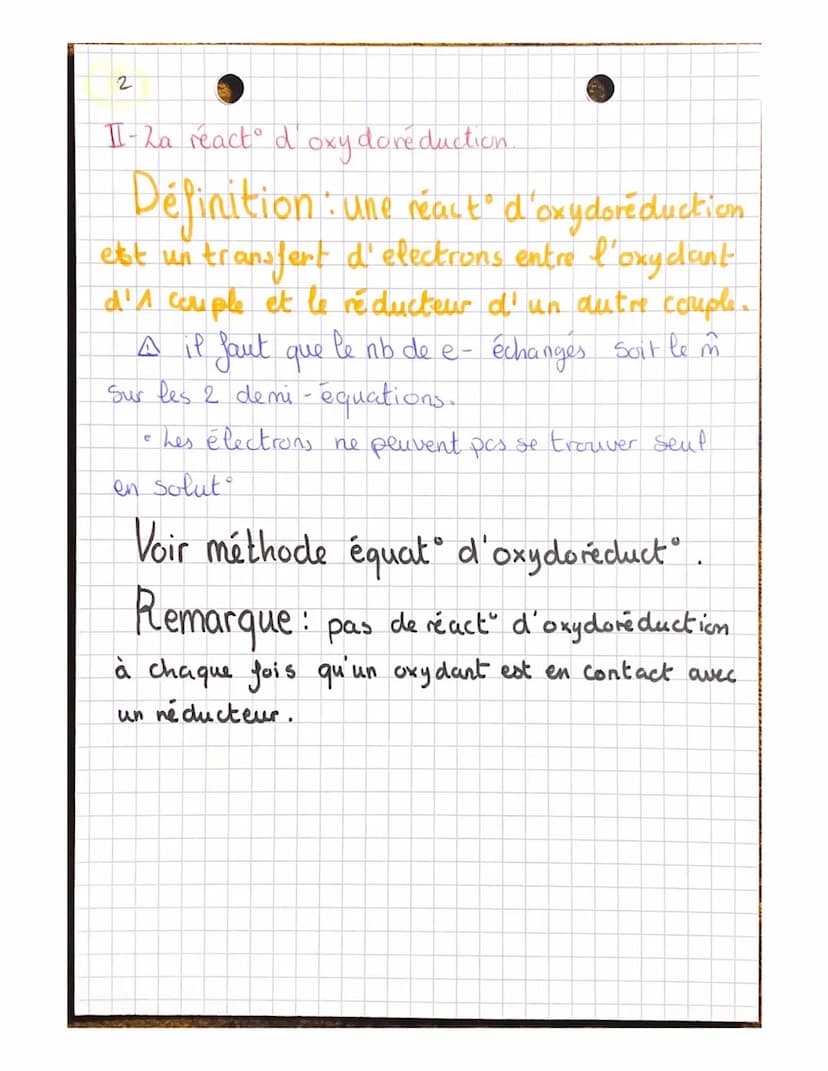 2
II-La réact° d'oxydoréduction.
Définition : une réact° d'oxydoréduction
est un transfert d'electrons entre l'oxydant
d'1 couple et le réducteur d'un autre couple.
⚠ il faut que le nb de e- échangés soit le m̂
sur les 2 demi-équations.
• Les électrons ne peuvent pas se trouver seul
en solut°
Voir méthode équat° d'oxydoréduct°.
Remarque : pas de réact° d'oxydoréduction
à chaque fois qu'un oxydant est en contact avec
un réducteur.